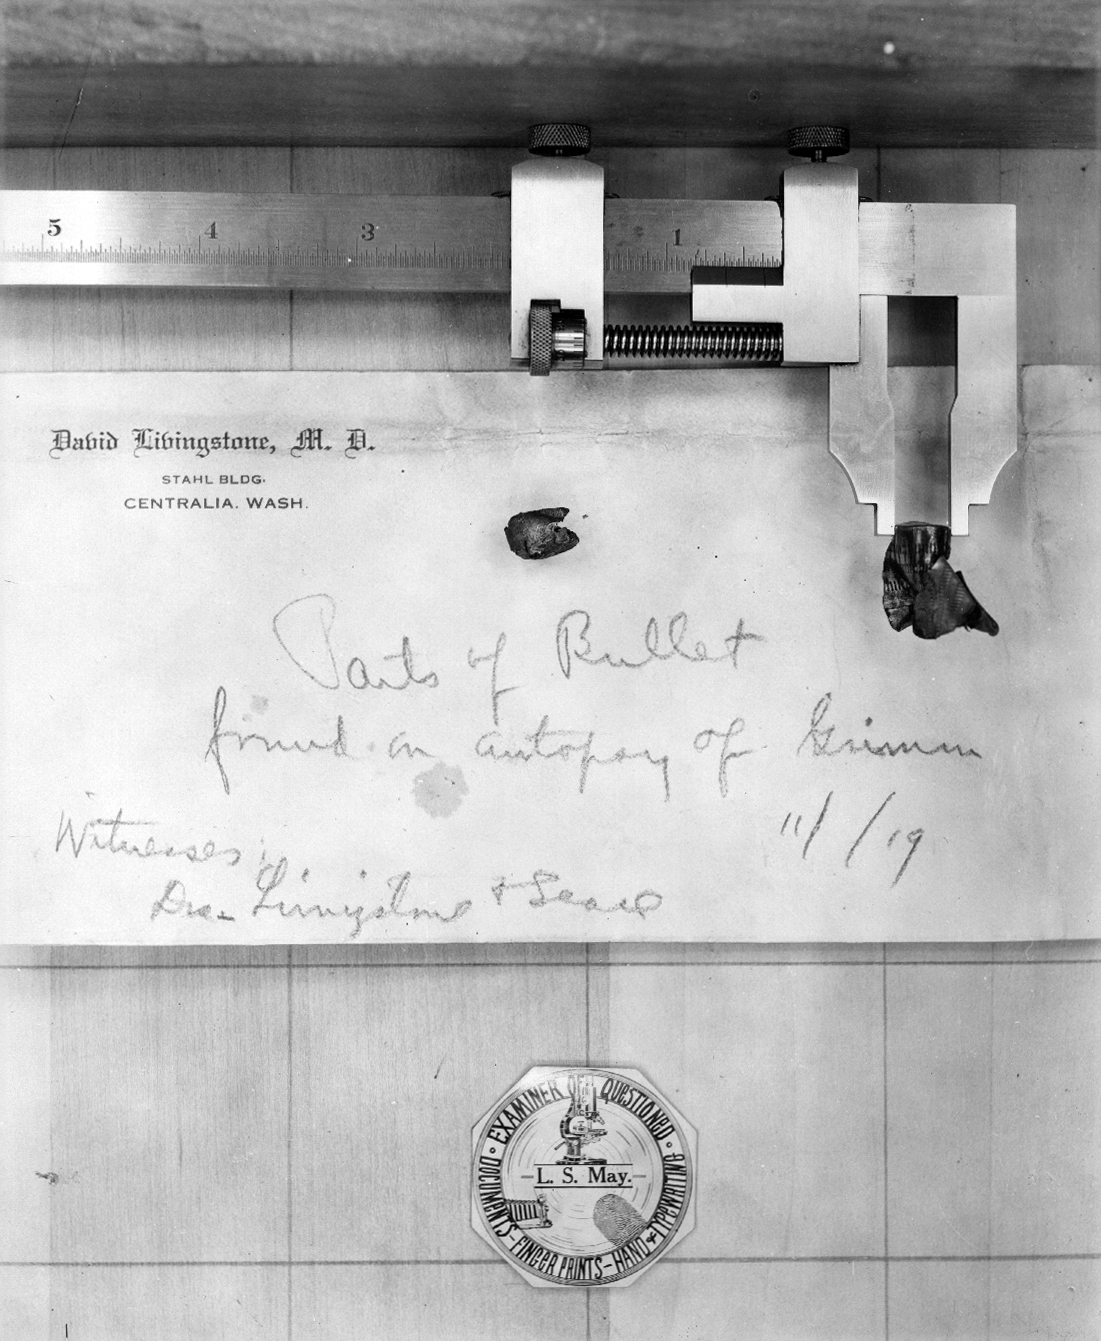 5 4 3 1
David Livingstone, M. D.
STAHL BLDG.
CENTRALIA. WASH.
Parts of Bullet
found on autopsy of Grimm
11/ /19
Witnesses
Drs. Livingstone &
EXAMINER OF QUESTIONED
DOCUMENTS - FINGER PRINTS - HAND & TYPEWRITING
L. S. May.